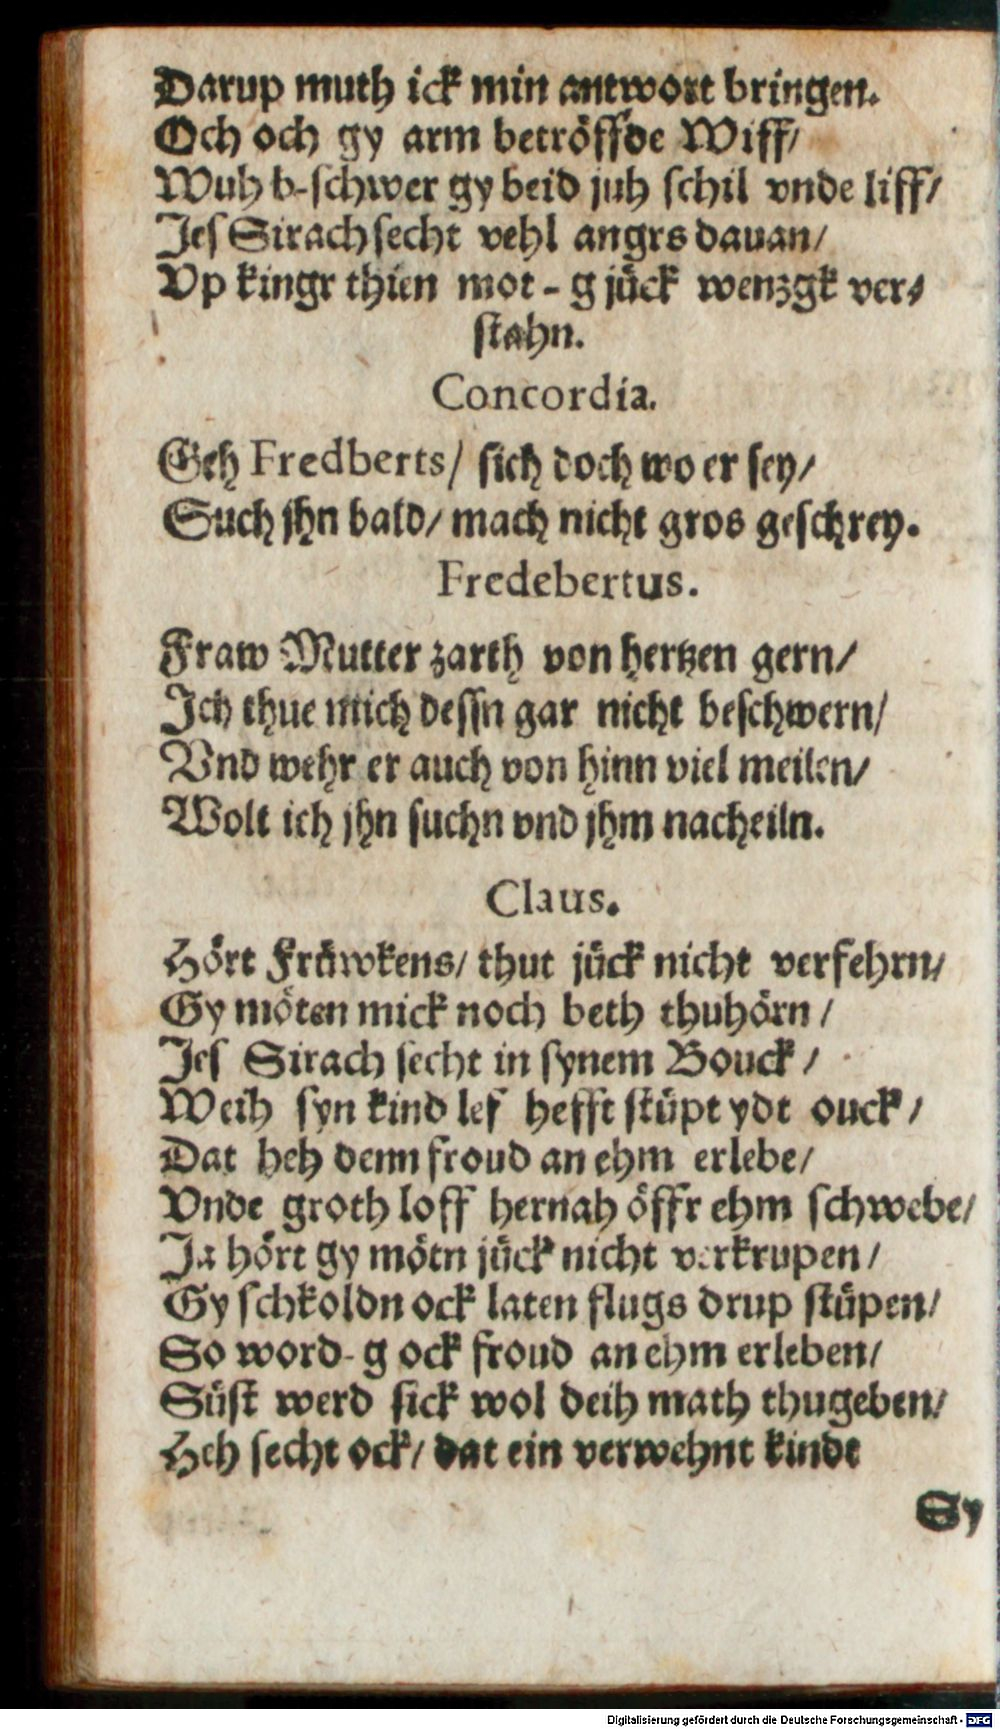 Darup muth ick min antwort bringen.
Och och gy arm betröffde Wiff/
Wuh b-schwer gy beid juh schil vnde liff/
Jes Sirach secht vehl angrs davan/
Vp kingr thien mot-g jück wenzgk ver-
stahn.
Concordia.
Geh Fredberts/ sich doch wo er sey/
Such jhn bald/ mach nicht gros geschrey.
Fredebertus.
Fraw Mutter zarth von hertzen gern/
Ich thue mich dessn gar nicht beschwern/
Vnd wehr er auch von hinn viel meilen/
Wolt ich jhn suchn vnd jhm nacheiln.
Claus.
Hört Fröwkens/ thut jück nicht verfehrn/
Gy möten mick noch beth thuhörn/
Jes Sirach secht in synem Bouck/
Weih syn kind lef hefft stüpt ydt ouck/
Dat heh denn froud an ehm erlebe/
Vnde groth loff hernah öffr ehm schwebe/
Ja hört gy mötn jück nicht verkrupen/
Gy schkoldn ock laten flugs drup stüpen/
So word-g ock froud an ehm erleben/
Süst werd sick wol deih math thugeben/
Heh secht ock/ dat ein verwehnt kinde
Sy
Digitalisierung gefördert durch die Deutsche Forschungsgemeinschaft - DFG